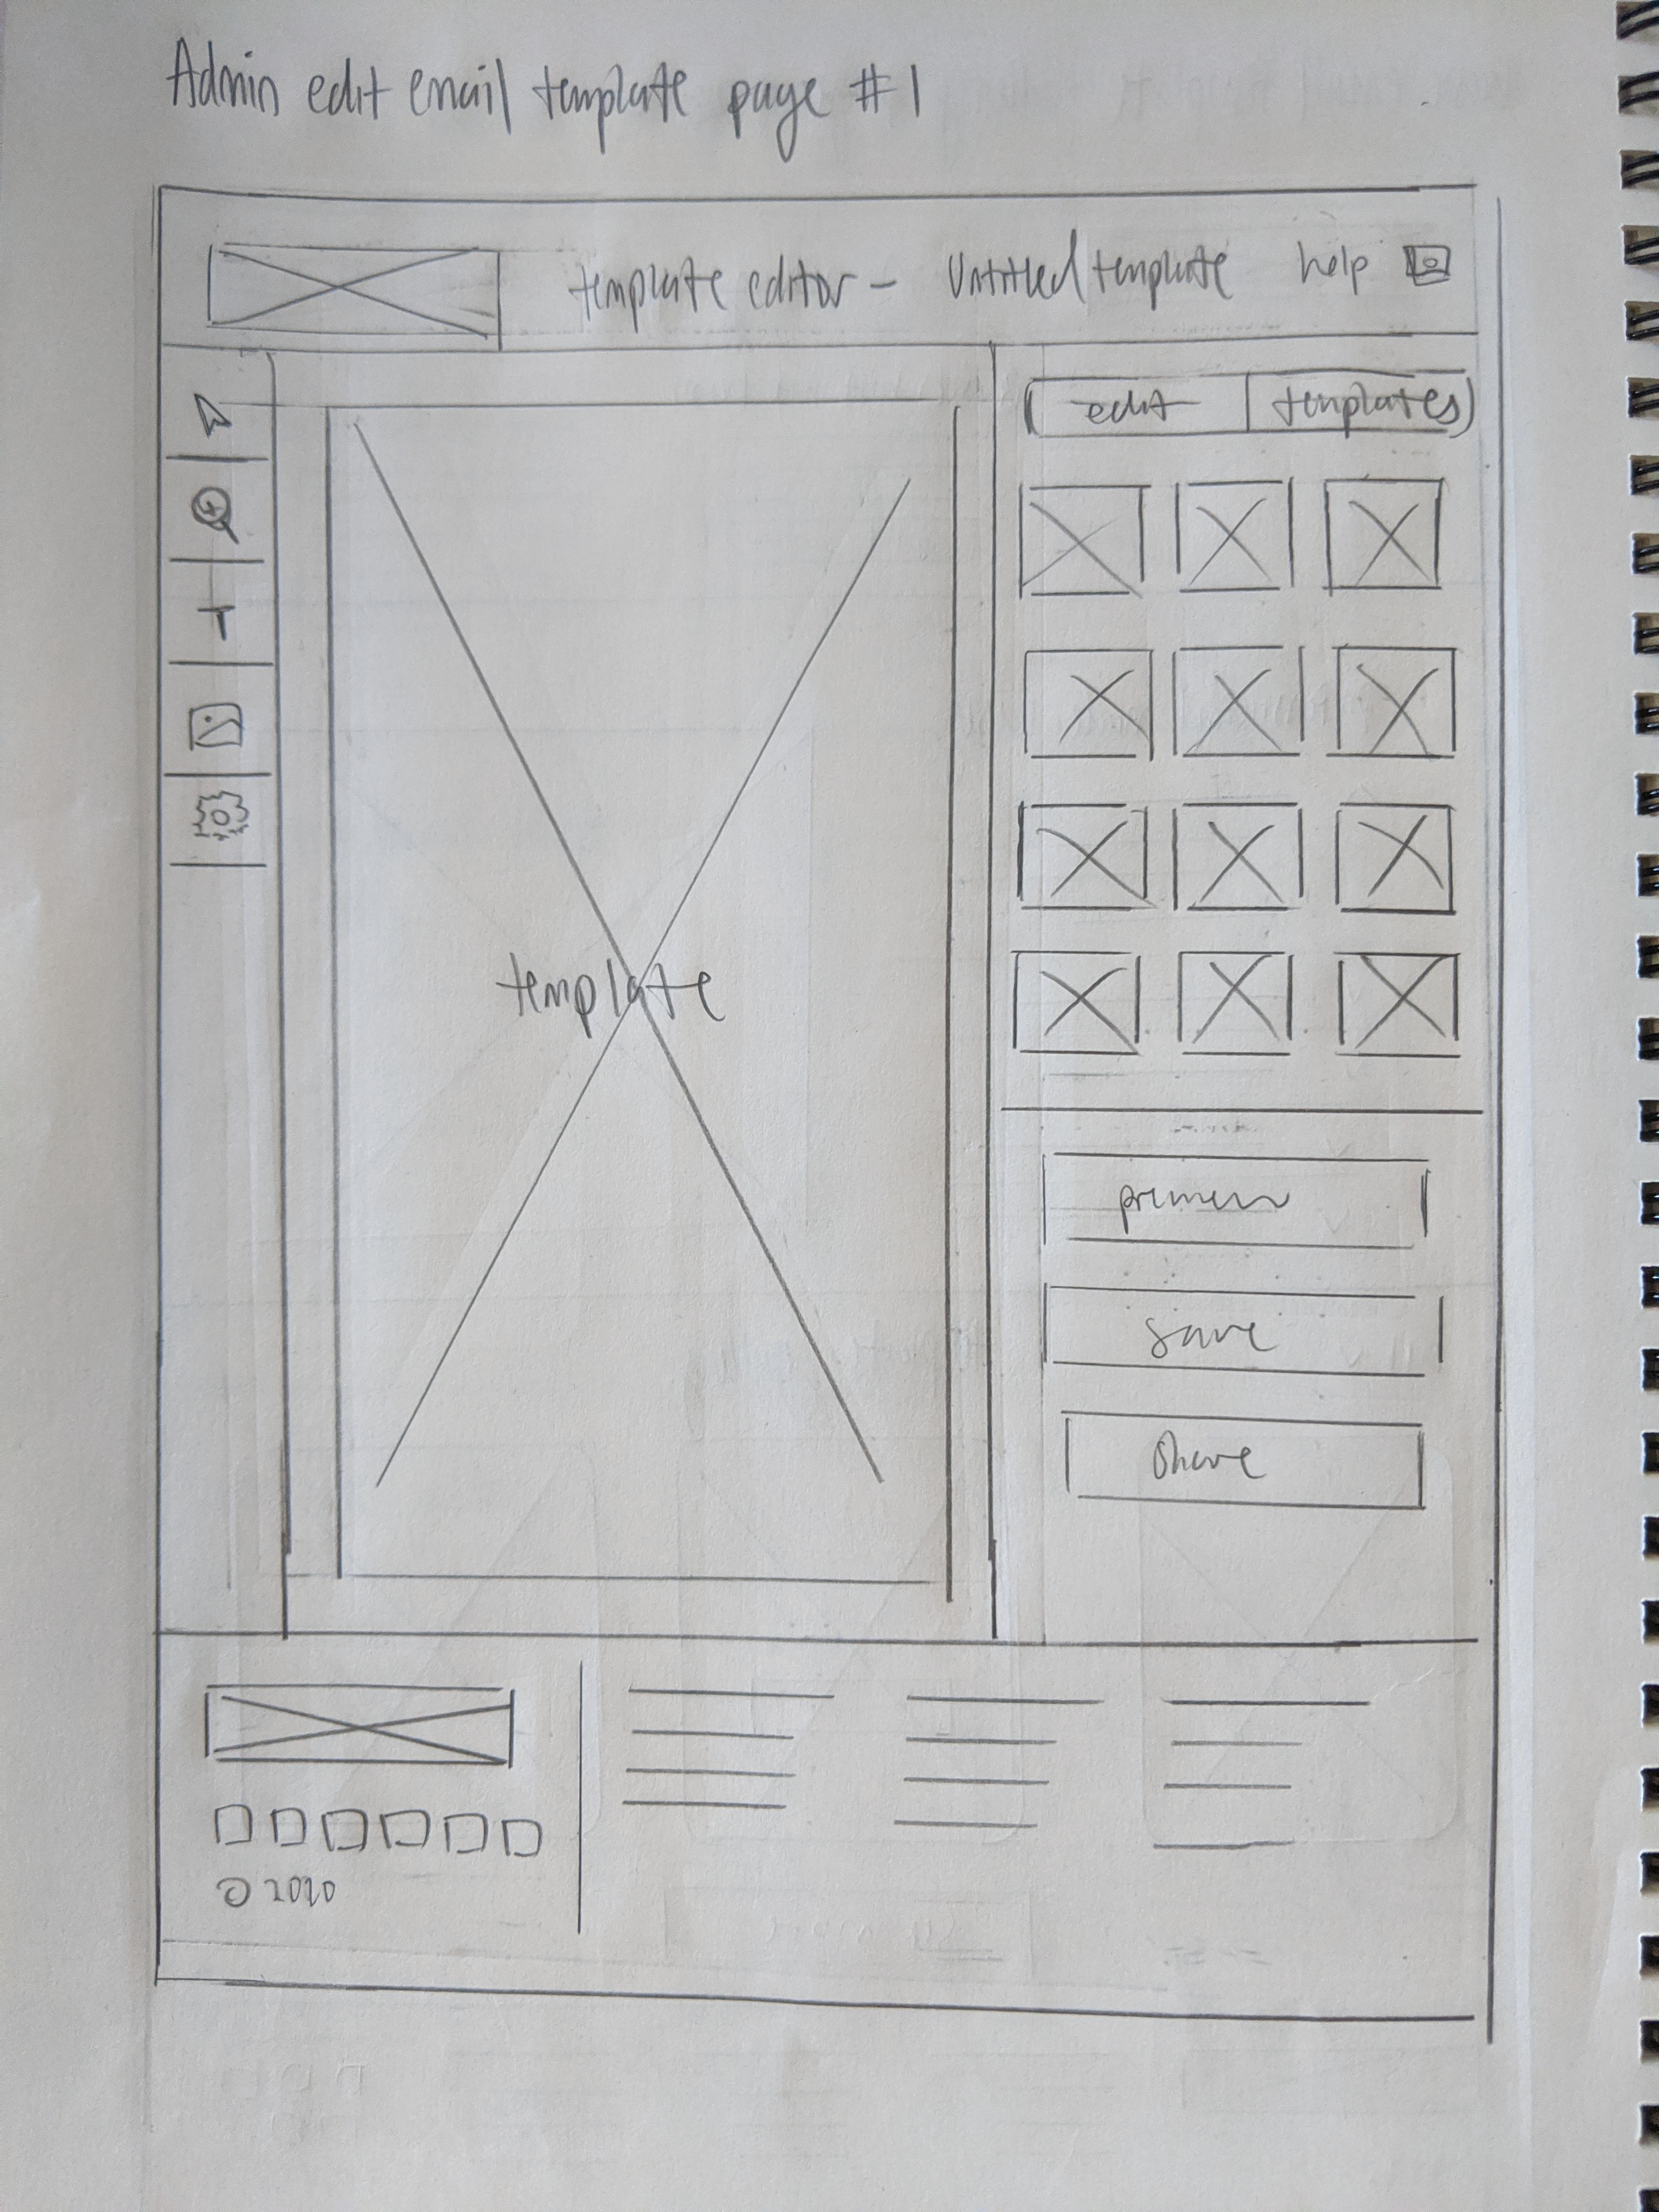 Admin edit email template page #1
template editor - Untitled template help
edit templates
T
template
save
Share
© 2020